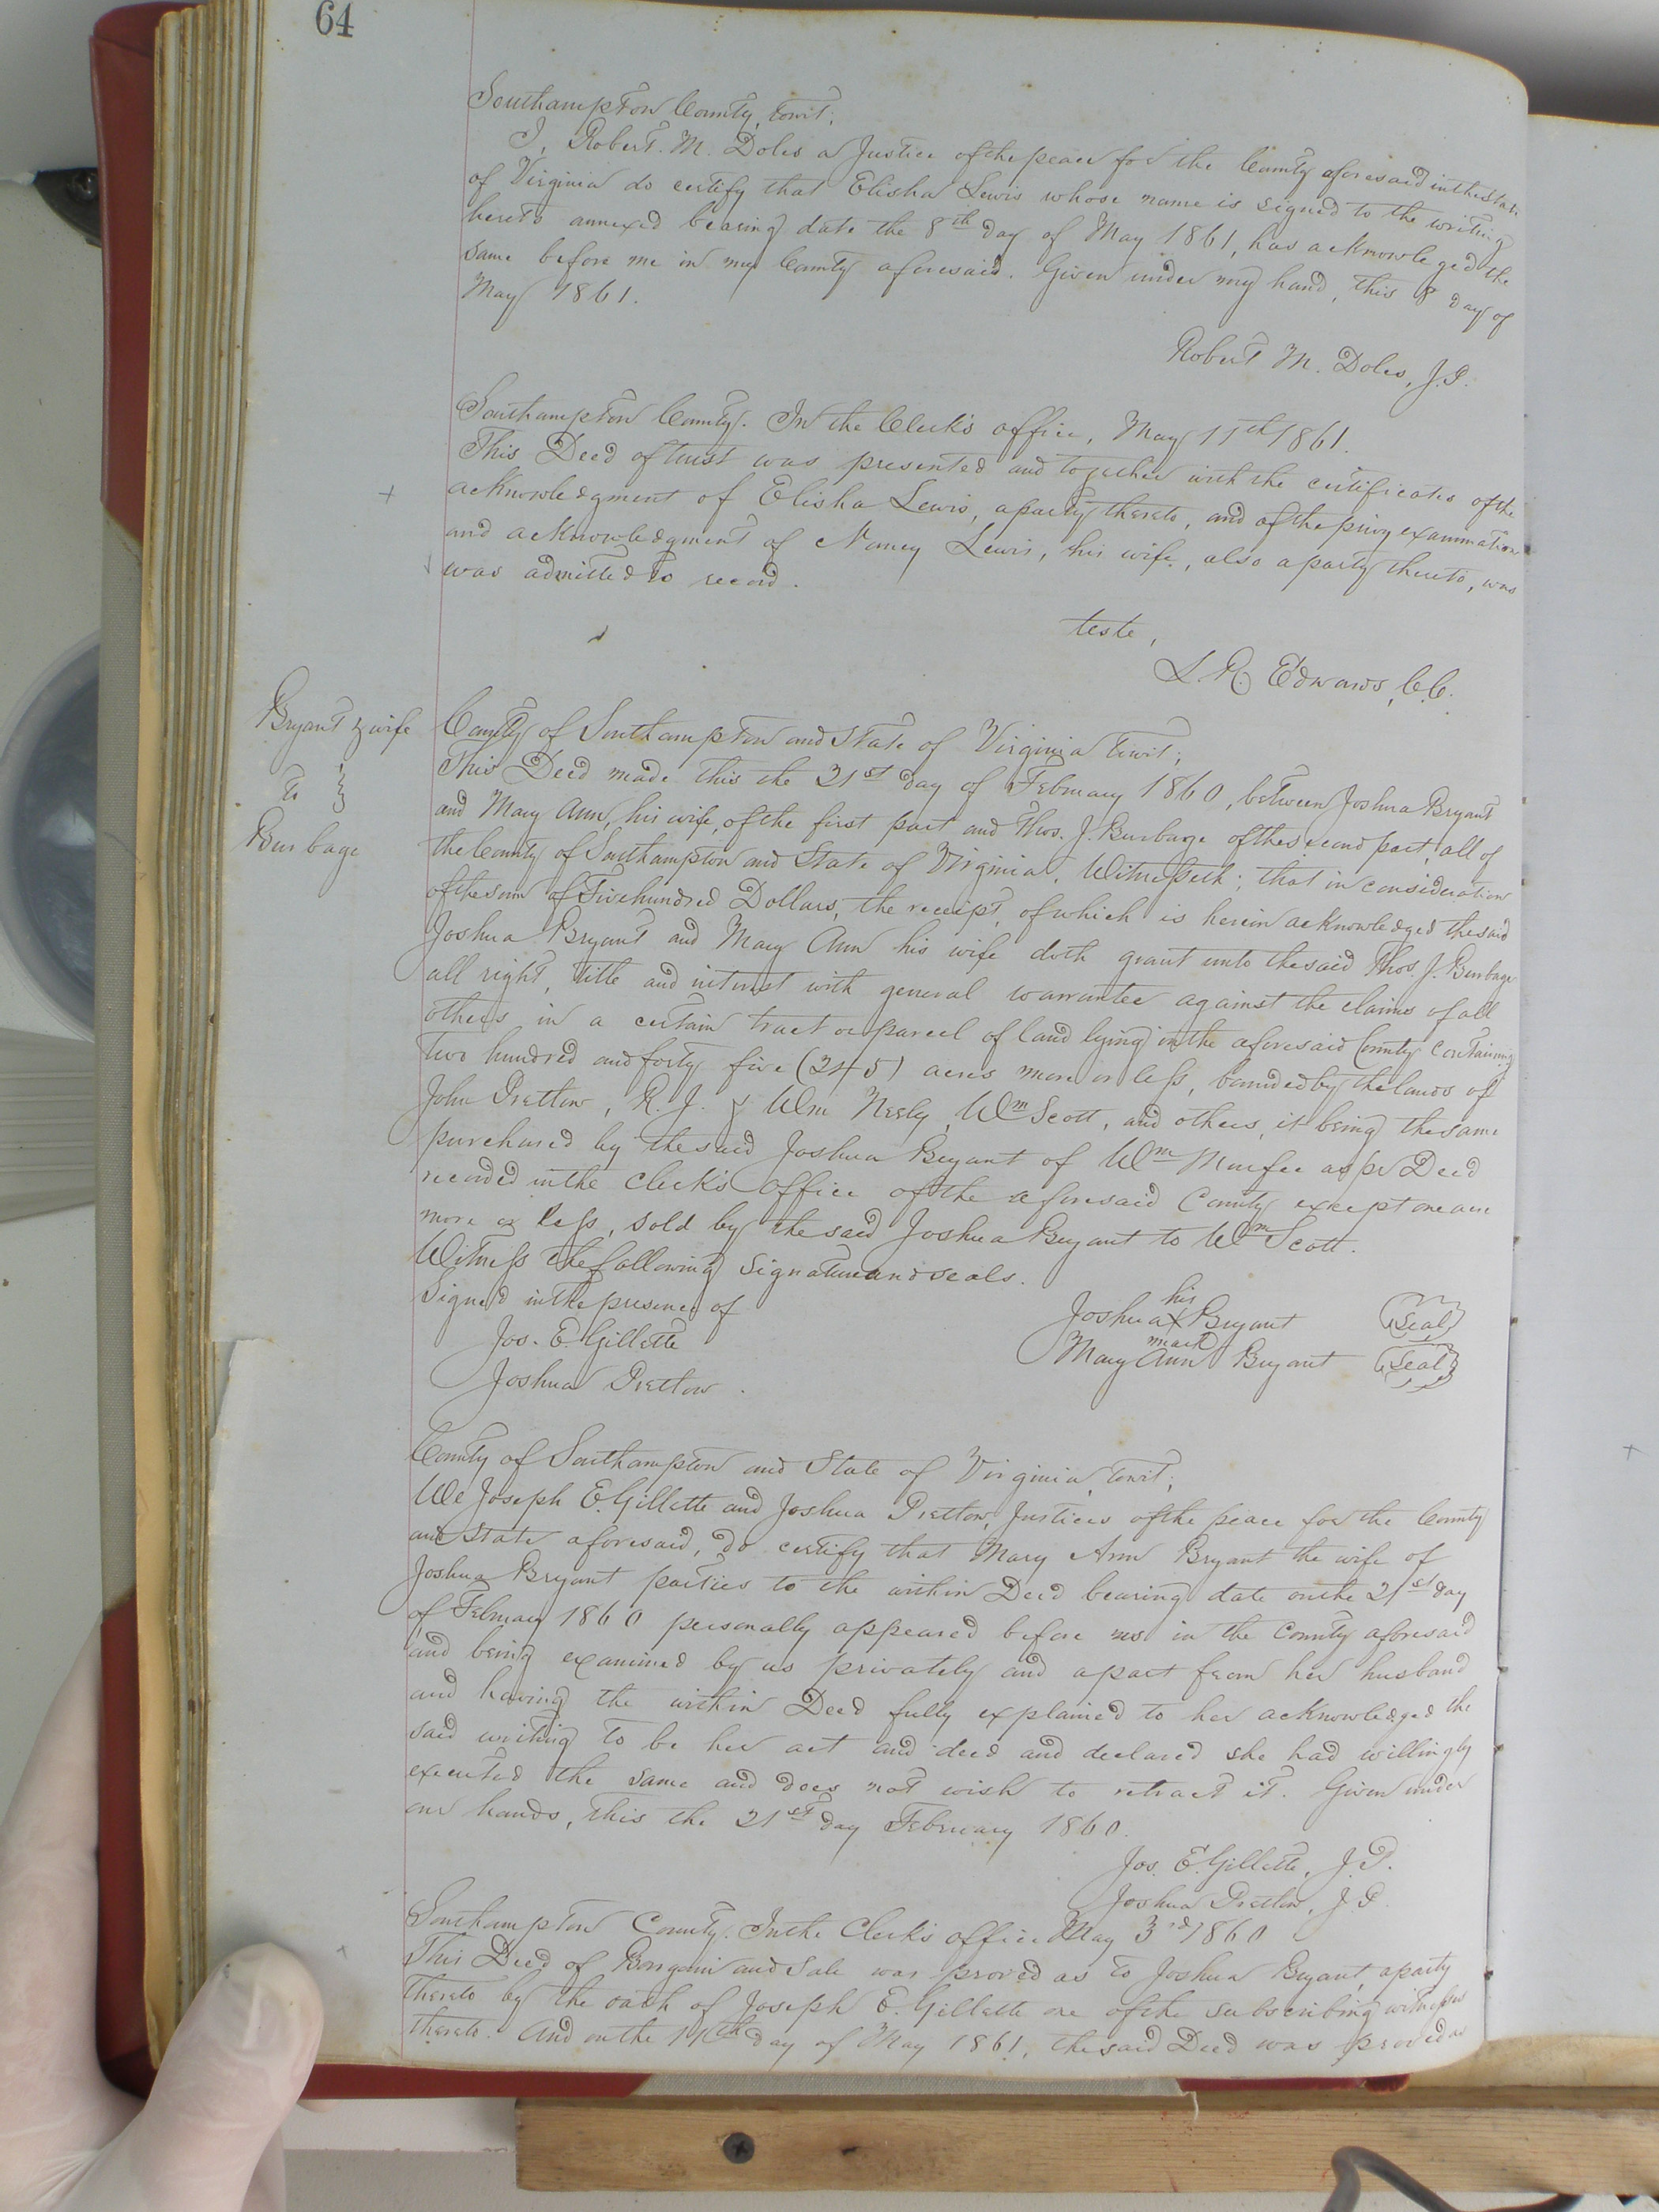 64
Southampton County, towit;
I, Robert. M. Doles a Justice of the peace for the County aforesaid in the State
of Virginia do certify that Elisha Lewis whose name is signed to the writing
hereto annexed bearing date the 8th day of May 1861, has acknowledged the
same before me in my County aforesaid. Given under my hand, this 8 day of
May 1861.
Robert M. Doles, J.P.
Southampton County. In the Clerk's office, May 11th 1861.
This Deed of trust was presented and together with the certificates of the
acknowledgment of Elisha Lewis, a party thereto, and of the privy examination
and acknowledgment of Nancy Lewis, his wife, also a party thereto, was
was admitted to record.
teste,
L. R. Edwards, C.C.
Bryant & wife
To
Burbage
County of Southampton and State of Virginia towit;
This Deed made this the 21st day of February 1860, between Joshua Bryant
and Mary Ann, his wife, of the first part and Thos. J. Burbage of the second part, all of
the County of Southampton and State of Virginia. Witnesseth; that in consideration
of the sum of Five hundred Dollars, the receipt, of which is herein acknowledged the said
Joshua Bryant and Mary Ann his wife doth grant unto the said Thos. J. Burbage
all right, title and interest with general warrantee against the claims of all
others in a certain tract or parcel of land lying in the aforesaid County containing
two hundred and forty five (245) acres more or less, bounded by the lands of
John Pretlow, R. J. & Wm Neely, Wm Scott, and others, it being the same
purchased by the said Joshua Bryant of Wm Murfee as pr Deed
recorded in the Clerk's office of the aforesaid County except one acre
more or less, sold by the said Joshua Bryant to Wm Scott.
Witness the following signature and seals.
Signed in the presence of
Jos. E. Gillette
Joshua Pretlow.
his
Joshua X Bryant (Seal)
mark
Mary Ann Bryant (Seal)
County of Southampton and State of Virginia, towit;
We Joseph E. Gillette and Joshua Pretlow, Justices of the peace for the County
and State aforesaid, do certify that Mary Ann Bryant the wife of
Joshua Bryant parties to the within Deed bearing date on the 21st day
of February 1860 personally appeared before us in the County aforesaid
and being examined by us privately and apart from her husband
and having the within Deed fully explained to her acknowledged the
said writing to be her act and deed and declared she had willingly
executed the same and does not wish to retract it. Given under
our hands, this the 21st day February 1860.
Jos. E. Gillette, J.P.
Joshua Pretlow, J.P.
Southampton County. In the Clerk's office May 3rd 1860
This Deed of Bargain and Sale was proved as to Joshua Bryant, a party
thereto by the oath of Joseph E. Gillette one of the subscribing witnesses
thereto. And on the 11th day of May 1861, the said Deed was proved as